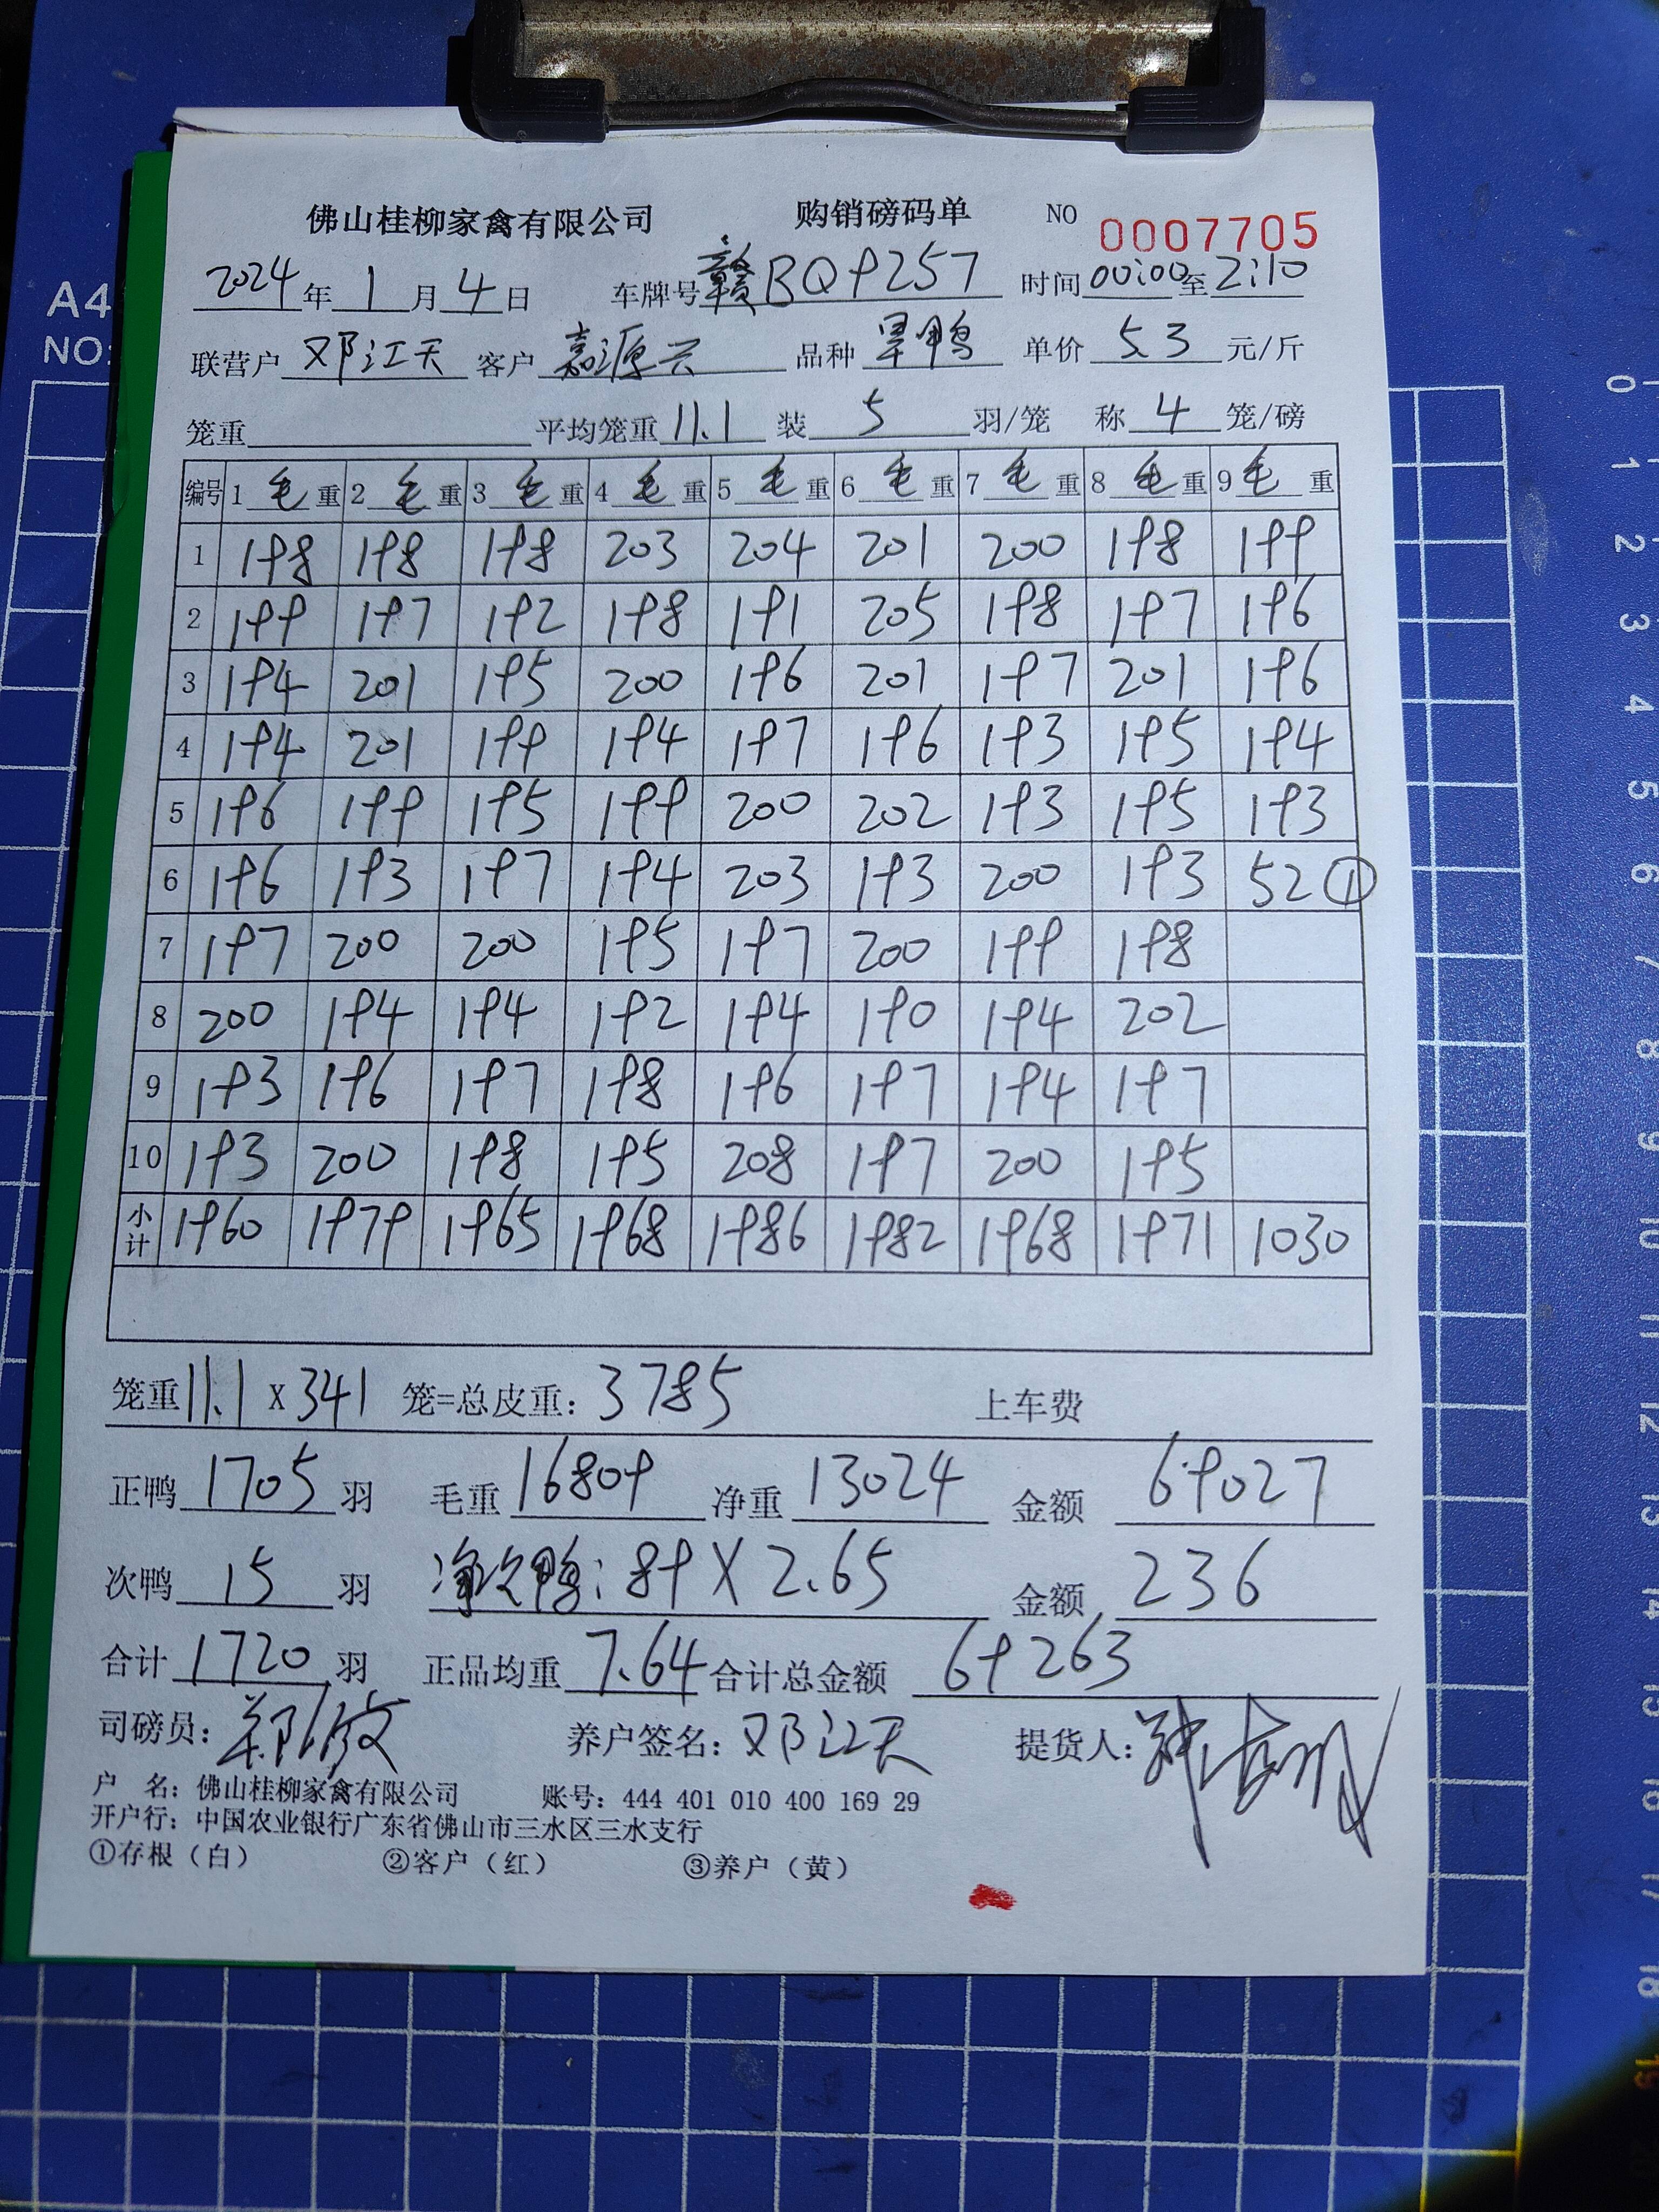 佛山桂柳家禽有限公司 购销磅码单 NO 0007705
2024年1月4日 车牌号赣BQ9257 时间00:00至2:10
联营户邓江天 客户嘉源兴 品种旱鸭 单价5.3元/斤
笼重 平均笼重11.1 装5羽/笼 称4笼/磅
编号 1毛重 2毛重 3毛重 4毛重 5毛重 6毛重 7毛重 8毛重 9毛重
1 198 198 198 203 204 201 200 198 199
2 199 197 192 198 191 205 198 197 196
3 194 201 195 200 196 201 197 201 196
4 194 201 199 194 197 196 193 195 194
5 196 199 195 199 200 202 193 195 193
6 196 193 197 194 203 193 200 193 52①
7 197 200 200 195 197 200 199 198
8 200 194 194 192 194 190 194 202
9 193 196 197 198 196 197 194 197
10 193 200 198 195 208 197 200 195
小计 1960 1979 1965 1968 1986 1982 1968 1971 1030
笼重11.1x341笼=总皮重：3785 上车费
正鸭1705羽 毛重16809 净重13024 金额69027
次鸭15羽 净次鸭：89X2.65 金额236
合计1720羽 正品均重7.64 合计总金额69263
司磅员： 养户签名：邓江天 提货人：
户 名：佛山桂柳家禽有限公司 账号：444 401 010 400 169 29
开户行：中国农业银行广东省佛山市三水区三水支行
①存根（白） ②客户（红） ③养户（黄）
A4
NO:
0
1
2
3
4
5
6
7
8
9
10
11
12
13
14
15
16
17
18